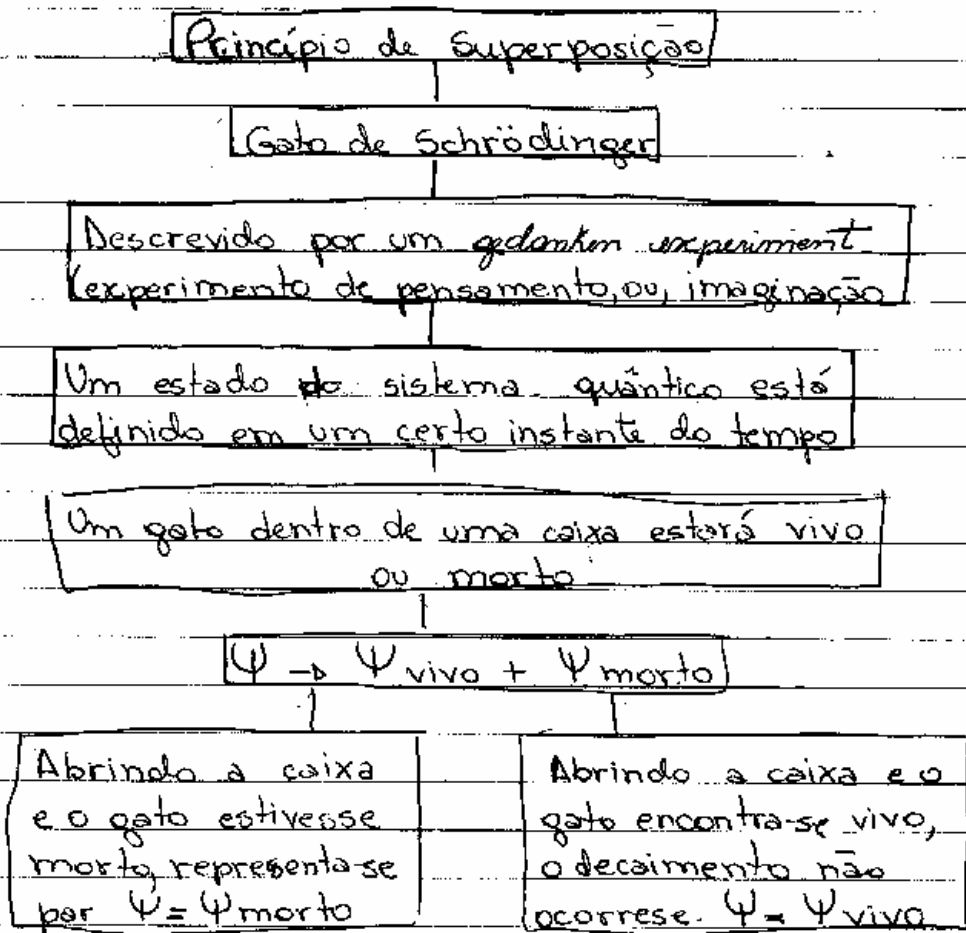 Princípio de Superposição
Gato de Schrödinger
Descrevido por um gedanken experiment
(experimento de pensamento, ou, imaginação
Um estado do sistema quântico está
definido em um certo instante do tempo
Um gato dentro de uma caixa estará vivo
ou morto
Ψ → Ψ vivo + Ψ morto
Abrindo a caixa
e o gato estivesse
morto, representa-se
por Ψ = Ψ morto
Abrindo a caixa e o
gato encontra-se vivo,
o decaimento não
ocorrese. Ψ = Ψ vivo